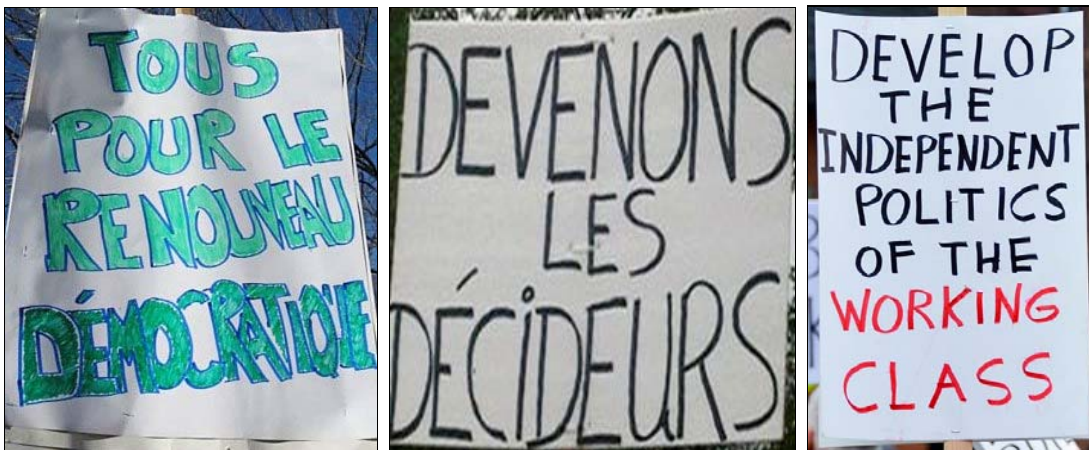 TOUS
POUR LE
RENOUVEAU
DÉMOCRATIQUE
DEVENONS
LES
DÉCIDEURS
DEVELOP
THE
INDEPENDENT
POLITICS
OF THE
WORKING
CLASS